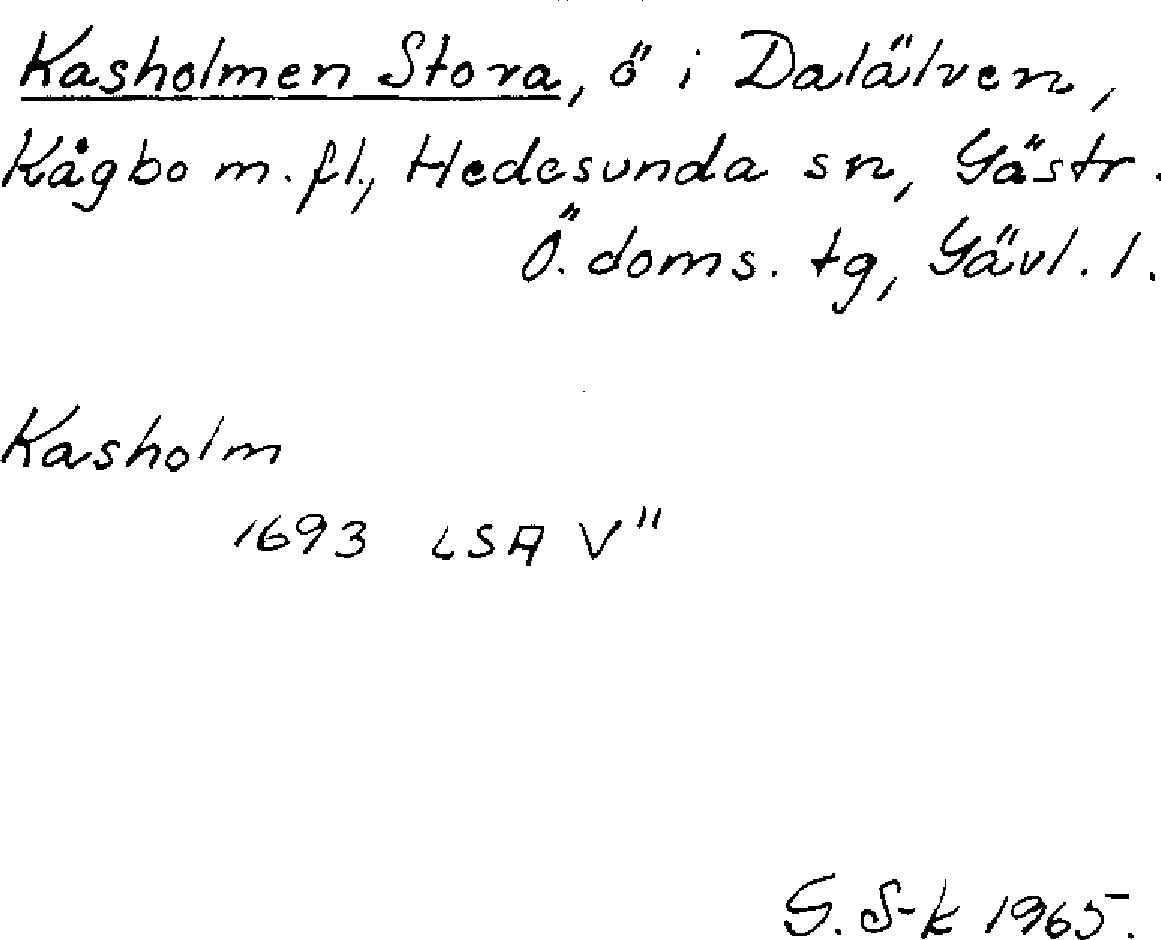 Kasholmen Stora, ö i Dalälven,
Kågbo m. fl., Hedesunda sn, Gästr.
Ö. doms. tg, Gävl. l.
Kasholm
1693 LSA V"
G. S-k 1965.